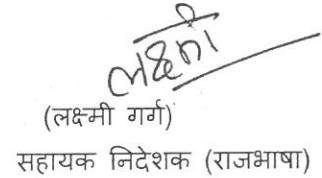 लक्ष्मी
(लक्ष्मी गर्ग)
सहायक निदेशक (राजभाषा)